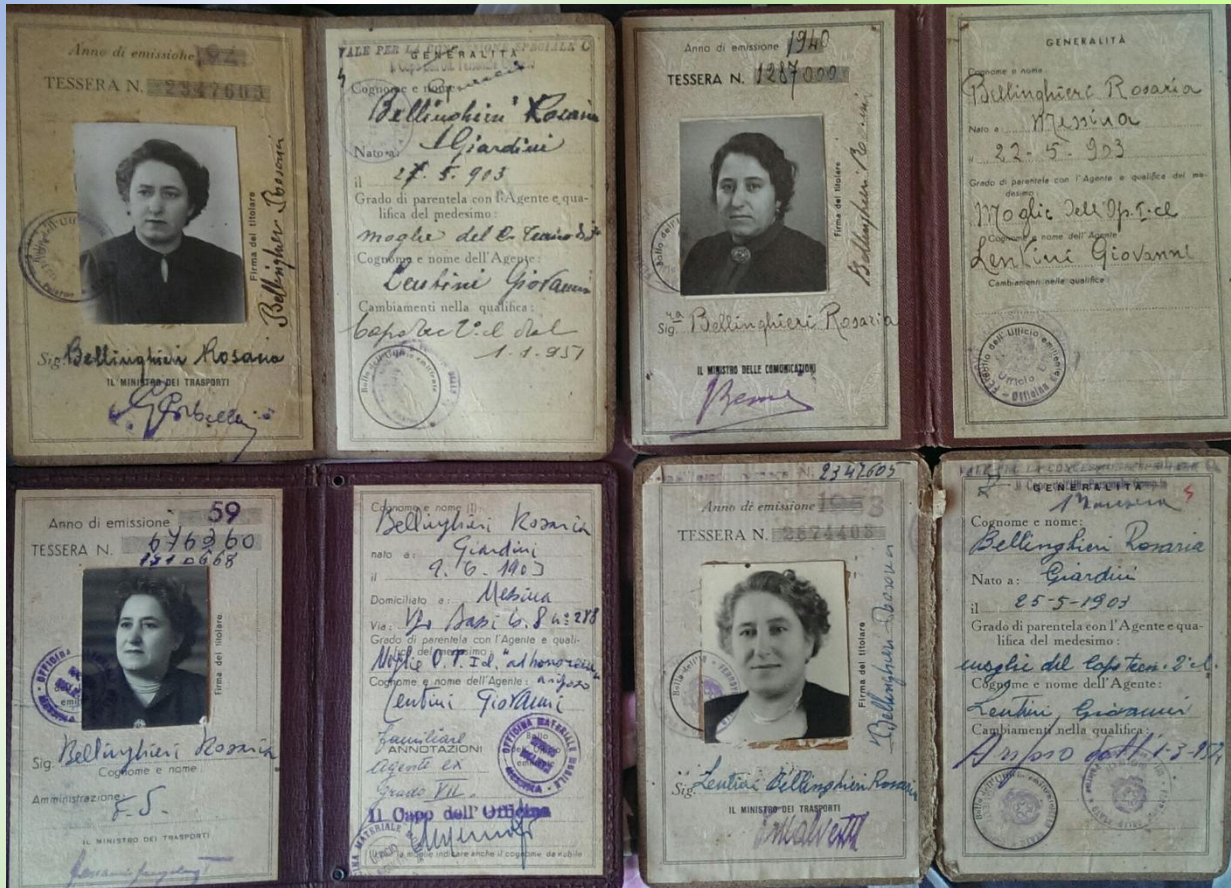 Anno di emissione
TESSERA N. 2347605
Firma del titolare
Bellinghieri Rosaria
Sig. Bellinghieri Rosaria
IL MINISTRO DEI TRASPORTI
VALE PER LA CONCESSIONE SPECIALE C
GENERALITÀ
Cognome e nome:
Bellinghieri Rosaria
Nato a: Giardini
il 27.5.903
Grado di parentela con l'Agente e qua-
lifica del medesimo:
moglie del
Cognome e nome dell'Agente:
Lentini Giovanni
Cambiamenti nella qualifica:
dal
1.1.951
Anno di emissione 1940
TESSERA N. 1287000
Firma del titolare
Sig.ra Bellinghieri Rosaria
IL MINISTRO DELLE COMUNICAZIONI
GENERALITÀ
Cognome e nome
Bellinghieri Rosaria
Nato a Messina
22-5-903
Grado di parentela con l'Agente e qualifica del me-
desimo:
Moglie dell'Op. I. cl
Cognome e nome dell'Agente
Lentini Giovanni
Cambiamenti nella qualifica:
Anno di emissione 59
TESSERA N. 676260
Firma del titolare
Sig. Bellinghieri Rosaria
Cognome e nome
Amministrazione:
F.S.
IL MINISTRO DEI TRASPORTI
Cognome e nome (1)
Bellinghieri Rosaria
nato a: Giardini
il 9.6.1903
Domiciliato a: Messina
Via:
Grado di parentela con l'Agente e quali-
fica del medesimo:
Moglie "ad honorem"
Cognome e nome dell'Agente: a riposo
Lentini Giovanni
Familiare
ANNOTAZIONI
Agente ex
Grado VII
Il Capo dell'Officina
OFFICINA MATERIALE MOBILE
MESSINA
N. 2347605
Anno di emissione 1953
TESSERA N. 2874403
Firma del titolare
Bellinghieri Rosaria
Sig. Lentini Bellinghieri Rosaria
IL MINISTRO DEI TRASPORTI
GENERALITÀ
Cognome e nome:
Bellinghieri Rosaria
Nato a: Giardini
il 25-5-1903
Grado di parentela con l'Agente e qua-
lifica del medesimo:
moglie del Capo tecn. 2ª cl.
Cognome e nome dell'Agente:
Lentini Giovanni
Cambiamenti nella qualifica:
A riposo dall'1-3-954